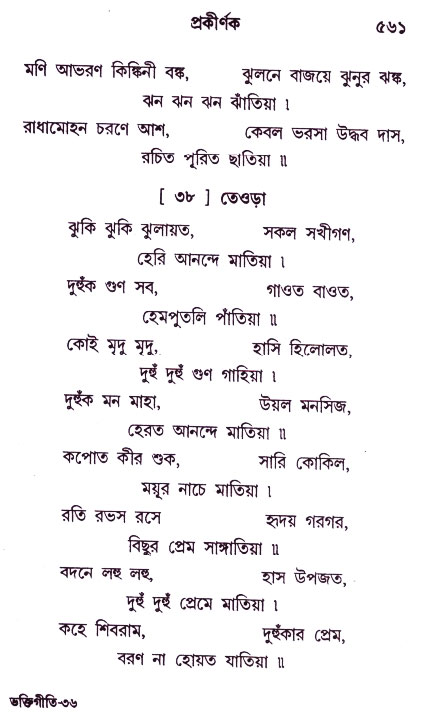 প্রকীর্ণক ৫৬১
মণি আভরণ কিঙ্কিনী বঙ্ক, ঝুলনে বাজয়ে ঝুনুর ঝঙ্ক,
ঝন ঝন ঝন ঝাঁতিয়া ।
রাধামোহন চরণে আশ, কেবল ভরসা উদ্ধব দাস,
রচিত পূরিত ছাতিয়া ॥
[ ৩৮ ] তেওড়া
ঝুকি ঝুকি ঝুলায়ত, সকল সখীগণ,
হেরি আনন্দে মাতিয়া ।
দুহুঁক গুণ সব, গাওত বাওত,
হেমপুতলি পাঁতিয়া ॥
কোই মৃদু মৃদু, হাসি হিলোলত,
দুহুঁ দুহুঁ গুণ গাহিয়া ।
দুহুঁক মন মাহা, উয়ল মনসিজ,
হেরত আনন্দে মাতিয়া ॥
কপোত কীর শুক, সারি কোকিল,
ময়ূর নাচে মাতিয়া ।
রতি রভস রসে হৃদয় গরগর,
বিছুর প্রেম সাঙ্গাতিয়া ॥
বদনে লহু লহু, হাস উপজত,
দুহুঁ দুহুঁ প্রেমে মাতিয়া ।
কহে শিবরাম, দুহুঁকার প্রেম,
বরণ না হোয়ত যাতিয়া ॥
ভক্তিগীতি-৩৬